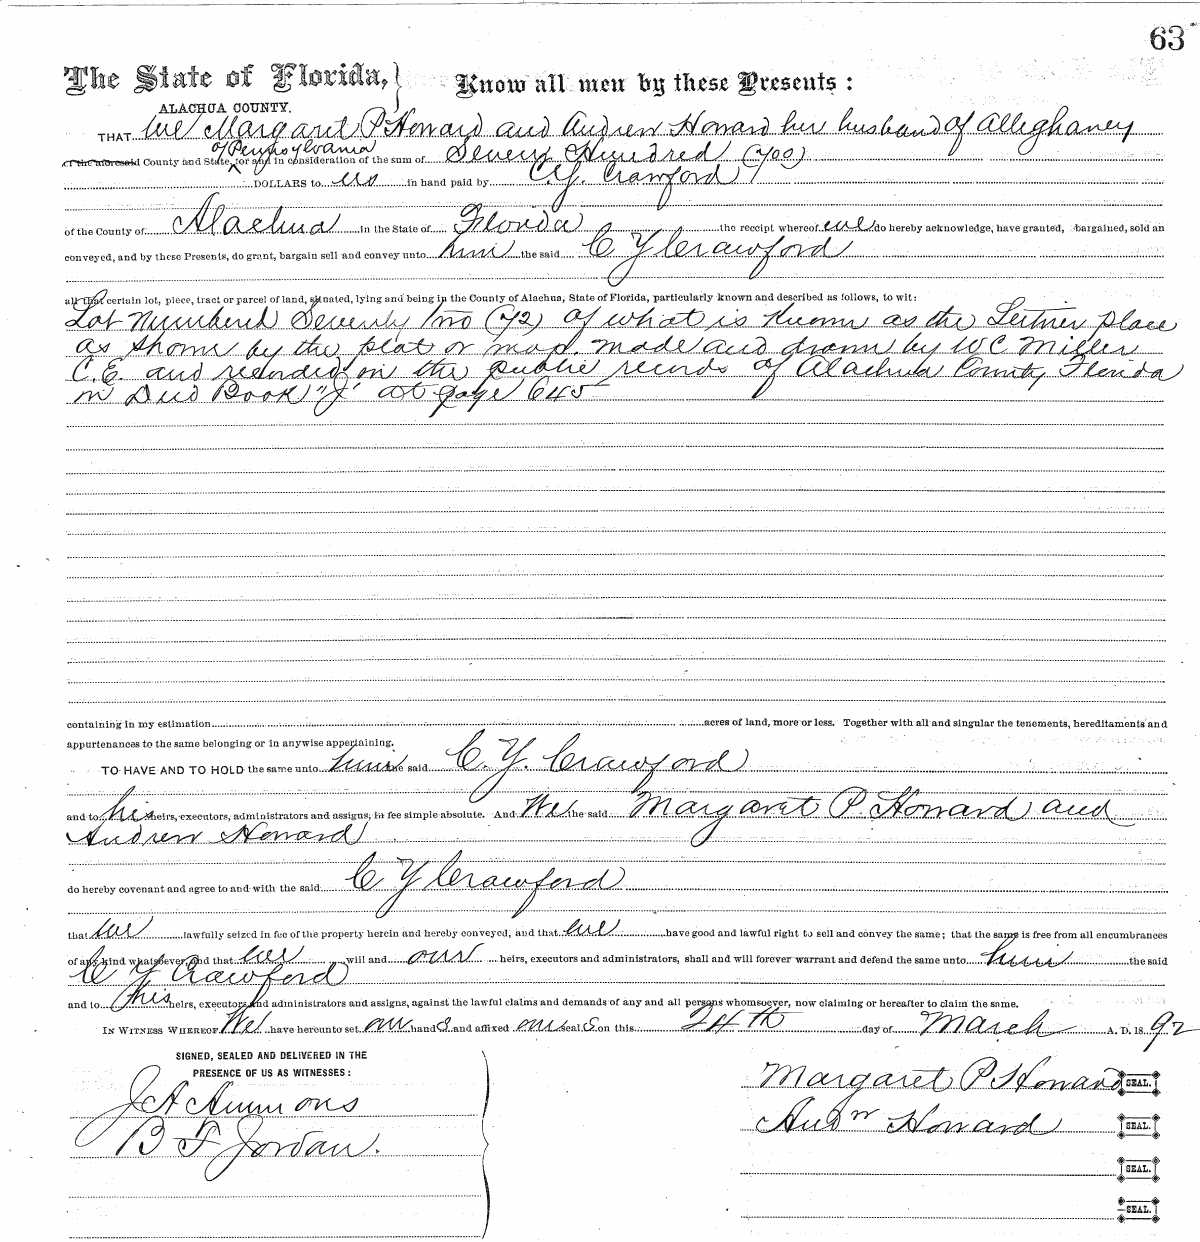 63
The State of Florida, Know all men by these Presents:
ALACHUA COUNTY.
THAT we Margaret P Howard and Andrew Howard her husband of Alleghaney
of Pennsylvania
of the aforesaid County and State, for and in consideration of the sum of Seven Hundred (700)
DOLLARS to us in hand paid by C.Y. Crawford
of the County of Alachua in the State of Florida the receipt whereof we do hereby acknowledge, have granted, bargained, sold an
conveyed, and by these Presents, do grant, bargain sell and convey unto him the said C Y Crawford
all that certain lot, piece, tract or parcel of land, situated, lying and being in the County of Alachua, State of Florida, particularly known and described as follows, to wit:
Lot Numbered Seventy two (72) of what is known as the Leitner place
as shown by the plat or map. made and drawn by W C Miller
C.E. and recorded on the public records of Alachua County Florida
in Deed Book "J" at page 645
containing in my estimation acres of land, more or less. Together with all and singular the tenements, hereditaments and
appurtenances to the same belonging or in anywise appertaining.
TO HAVE AND TO HOLD the same unto him the said C. Y. Crawford
and to his heirs, executors, administrators and assigns, in fee simple absolute. And We the said Margaret P. Howard and
Andrew Howard
do hereby covenant and agree to and with the said C Y Crawford
that we lawfully seized in fee of the property herein and hereby conveyed, and that we have good and lawful right to sell and convey the same; that the same is free from all encumbrances
of any kind whatsoever, and that we will and our heirs, executors and administrators, shall and will forever warrant and defend the same unto him the said
C Y Crawford
and to his heirs, executors and administrators and assigns, against the lawful claims and demands of any and all persons whomsoever, now claiming or hereafter to claim the same.
IN WITNESS WHEREOF We have hereunto set our hand s and affixed our seal s on this 24th day of March A. D. 18 92
SIGNED, SEALED AND DELIVERED IN THE
PRESENCE OF US AS WITNESSES:
J A Ammons
B F Jordan.
Margaret P Howard SEAL.
Andw Howard SEAL.
SEAL.
SEAL.